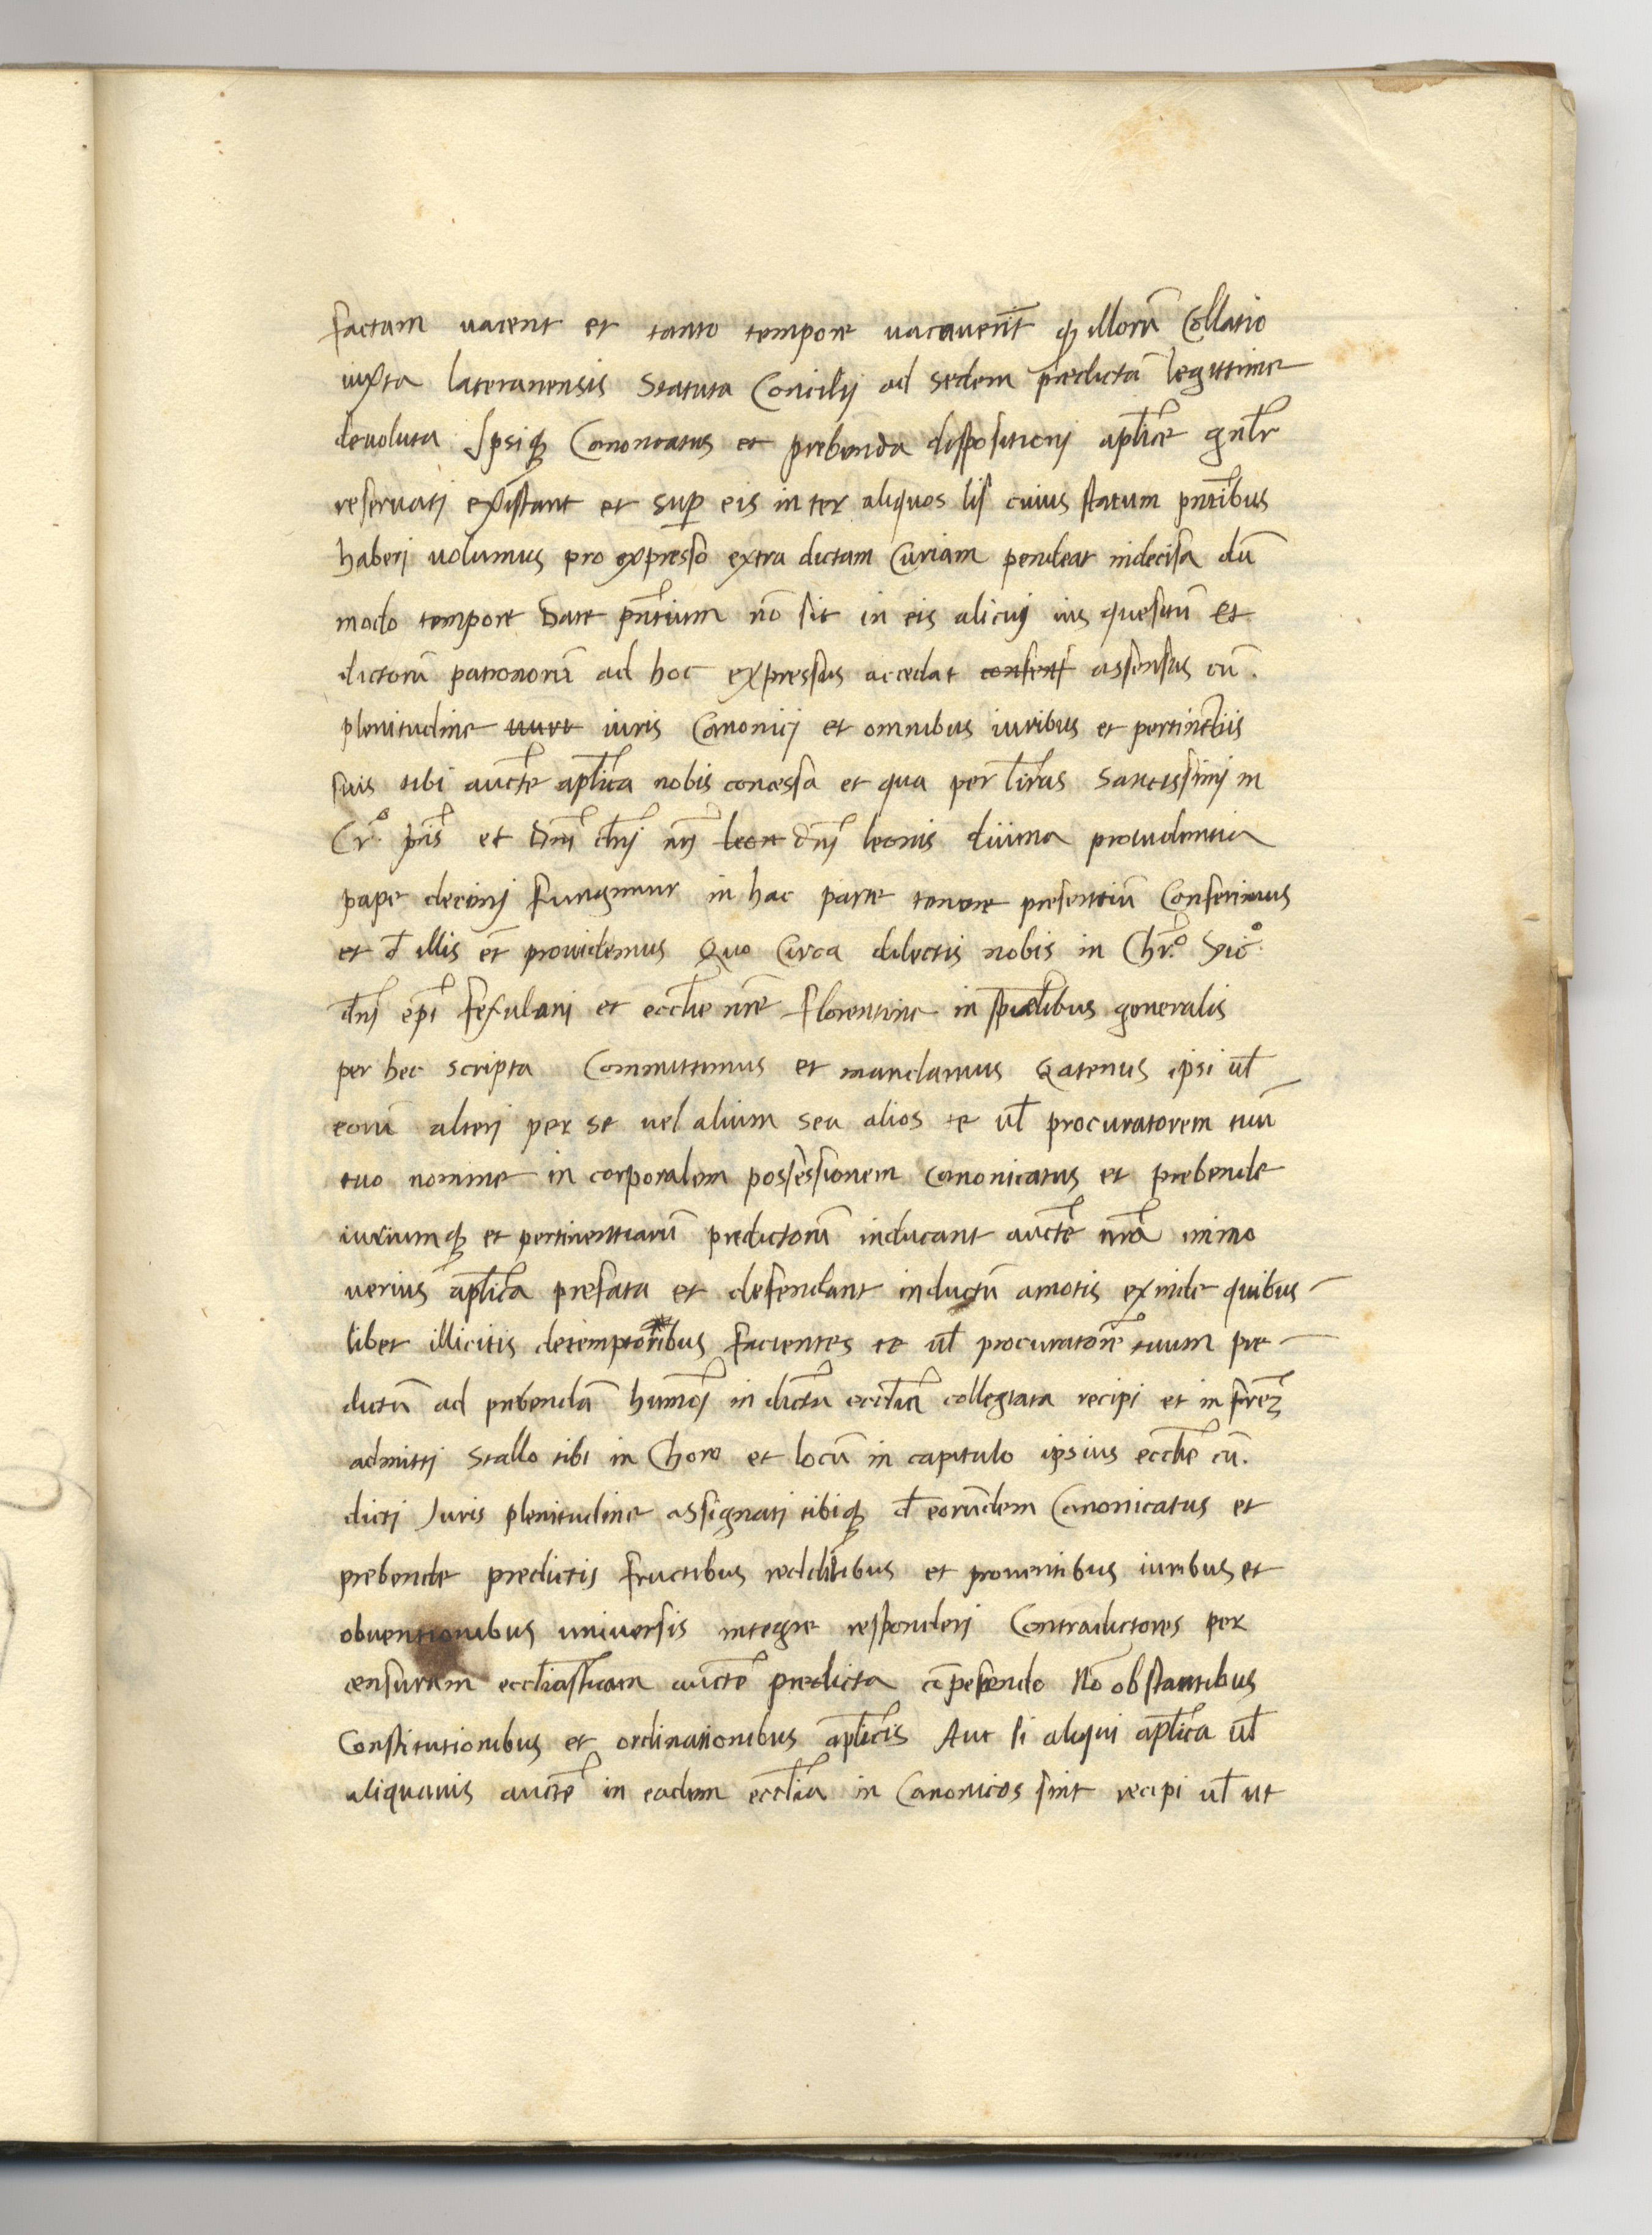 factam vacent et tanto tempore vacauerīt ꝙ illorū Collatio
iuxta lateranensis Statuta Concilij ad sedem predictā legittime
deuoluta Ipsiqȝ Canonicatus et prebenda dispositionj aplice gnlr
reseruatj existant et sup̱ eis inter aliquos lis cuius statum pn̄tibus
haberj volumus pro expresso extra dictam Curiam pendeat indecisa dū
modo tempore Date pn̄tium nō sit in eis alicuj ius quesitū et
dictorū patronorū ad hoc expressus accedat consens assensus cū
plenitudine iure iuris Canonicj et omnibus iuribus et pertinētiis
suis tibi aucte aplica nobis concessa et qua per lr̄as Sanctissimj in
Cr̄o pr̄is et Dnj dnj nrj leon dnj leonis diuina prouidentia
pape decimj fungimur in hac parte tenore presentiū Conferimus
et đ illis et̄ prouidemus Quo Circa dilectis nobis in Chr̄o Vic:
dnj epi fesulanj et ecclie nr̄e florentine in spūalibus generalis
per hec scripta Committimus et mandamus Qatenus ipsi ul̄
eorū alterj per se uel alium seu alios te ul̄ procuratorem tuū
tuo nomine in corporalem possessionem canonicatus et prebende
iuriumqȝ et pertinentiarū predictorū inducant aucte nr̄a immo
verius aplica prefata et defendant inductū amotis exinde quibus
libet illicitis detemptoribus facientes te ul̄ procuratorē tuum pre
dictū ad prebendā humōj in dicta ecclia collegiata recipi et in frem̄
admittj Stallo tibi in Choro et locū in capitulo ipsius ecclie cū
dictj Juris plenitudine assignatj tibiqȝ đ eorūdem Canonicatus et
prebende predictis fructibus redditibus et prouentibus iuribus et
obuentionibus universis integre responderj Contradictores per
censuram eccliasticam aucte predicta cōpescendo Nō obstantibus
Constitutionibus et ordinationibus aplicis Aut si aliqui aplica ul̄
aliquauis aucte in eadem ecclia in Canonicos sint recipi ul̄ ut